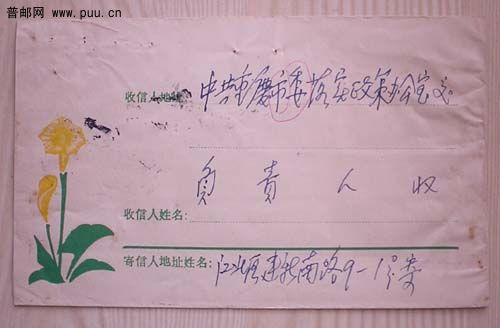 普邮网
www.puu.cn
收信人地址: 中共重庆市委落实政策办公室
负责人收
收信人姓名:
寄信人地址姓名: 江北区建新南路9-1号